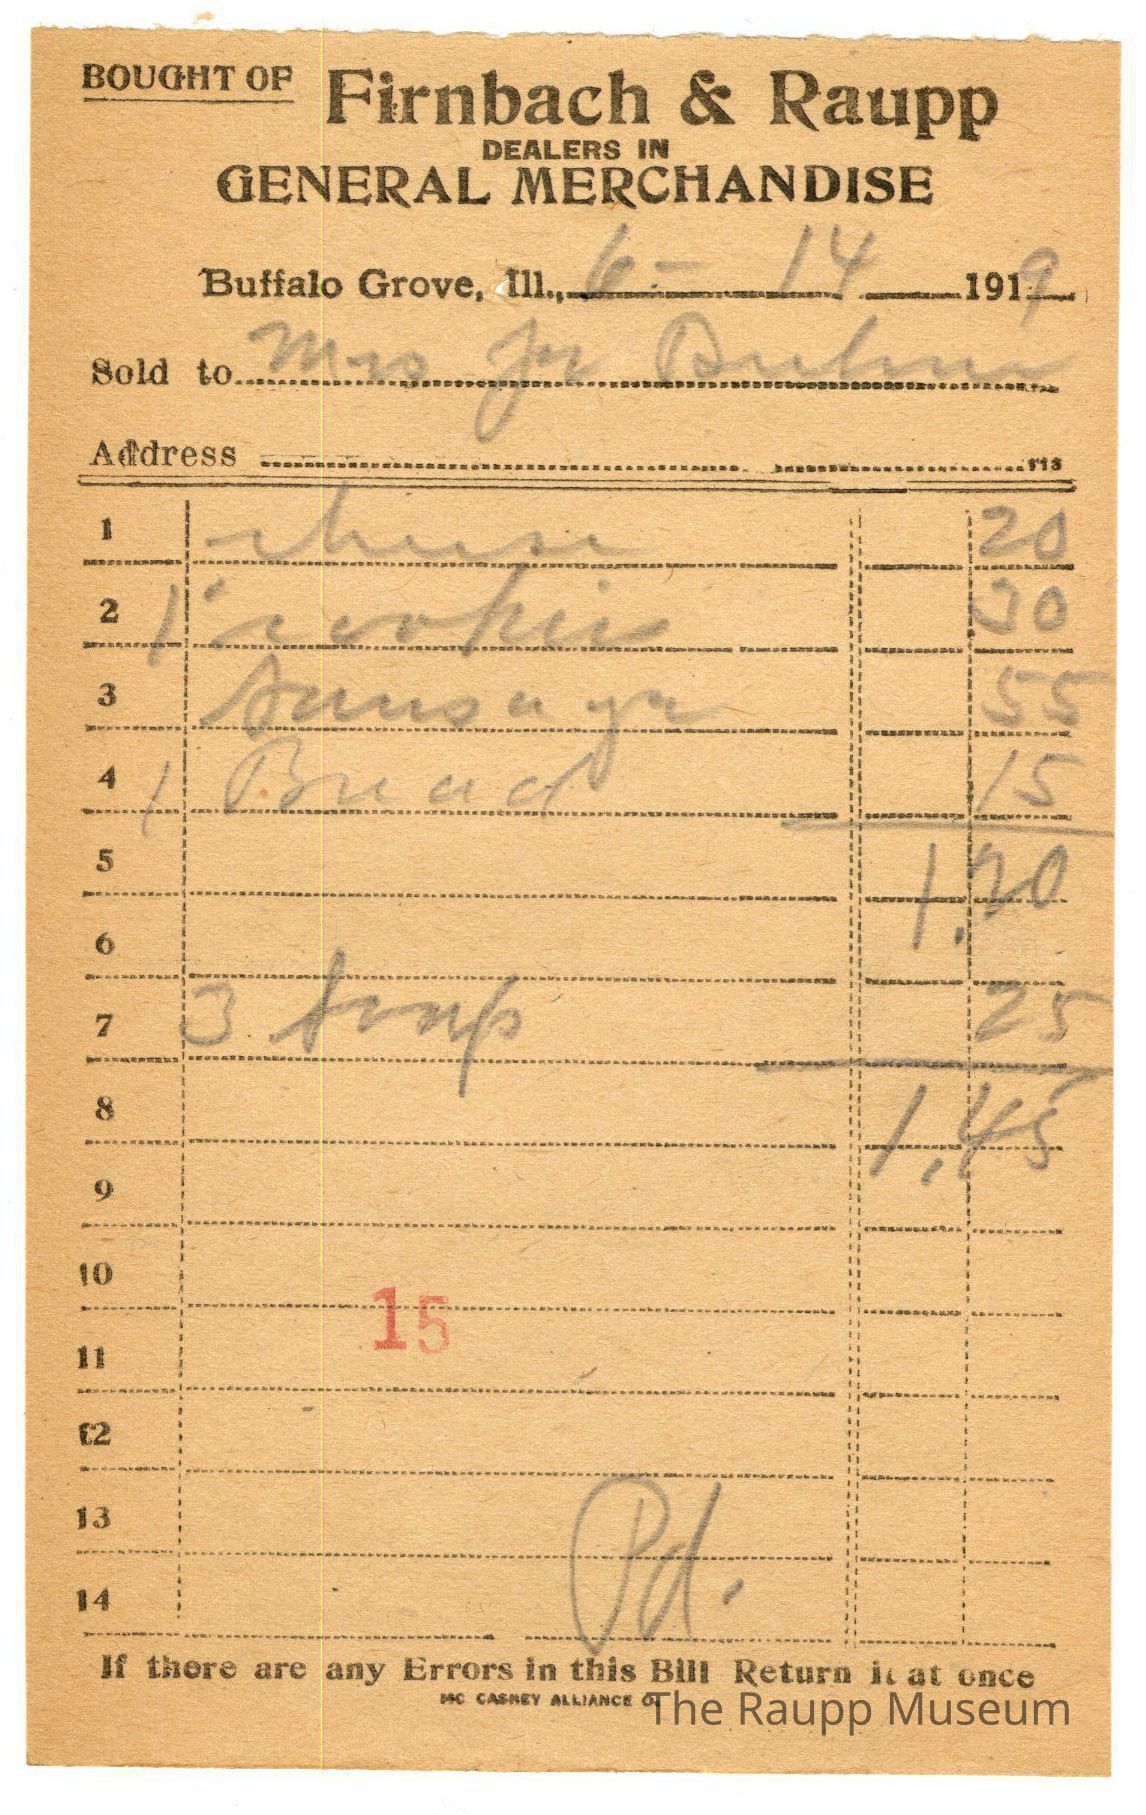 BOUGHT OF Firnbach & Raupp
DEALERS IN
GENERAL MERCHANDISE
Buffalo Grove, Ill., 6 - 14 1919
Sold to Mrs
Address F13
1 cheese 20
2 1 cookies 30
3 Sausage 55
4 1 Bread 15
5 1.20
6
7 3 soap 25
8 1.45
9
10
15
11
12
13
Pd.
14
If there are any Errors in this Bill Return it at once
MC CASKEY ALLIANCE O.
The Raupp Museum